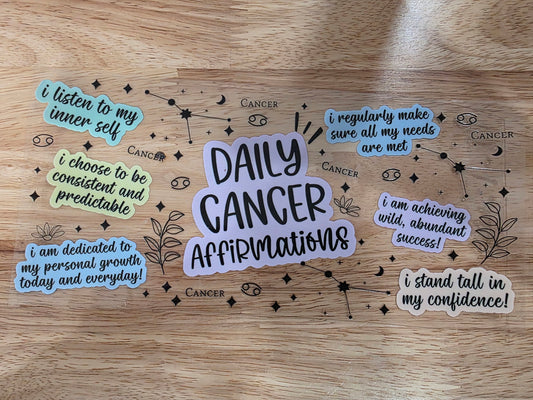 i listen to my
inner self
CANCER
i regularly make
sure all my needs
are met
CANCER
i choose to be
consistent and
predictable
CANCER
DAILY
CANCER
AFFiRMations
CANCER
i am achieving
wild, abundant
success!
i am dedicated to
my personal growth
today and everyday!
CANCER
i stand tall in
my confidence!